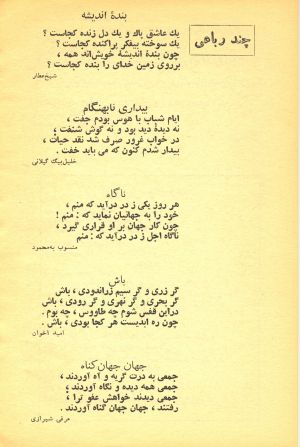 چند رباعی
بندهٔ اندیشه
یك عاشق پاك و یك دل زنده کجاست ؟
یك سوخته بیفکر پراکنده کجاست ؟
چون بندهٔ اندیشه خویش‌اند همه ،
برروی زمین خدای را بنده کجاست ؟
شیخ عطار
بیداری نابهنگام
ایام شباب با هوس بودم جفت ،
نه دیدهٔ دید بود و نه گوش شنفت ،
در خواب غرور صرف شد نقد حیات ،
بیدار شدم کنون که می باید خفت .
خلیل‌بیك گیلانی
ناگاه
هر روز یکی ز در درآید که منم ،
خود را به جهانیان نماید که : منم !
چون کار جهان بر او قراری گیرد ،
ناگاه اجل ز در درآید که : منم
منسوب به‌محمود
باش
گر زری و گر سیم زراندودی ، باش
گر بحری و گر نهری و گر رودی ، باش
دراین قفس شوم چه طاووس ، چه بوم .
چون ره ابدیست هر کجا بودی ، باش .
امید اخوان
جهان جهان گناه
جمعی به درت گریه و آه آوردند ،
جمعی همه دیده و نگاه آوردند ،
جمعی دیدند خواهش عفو ترا ،
رفتند ، جهان جهان گناه آوردند .
عرفی شیرازی